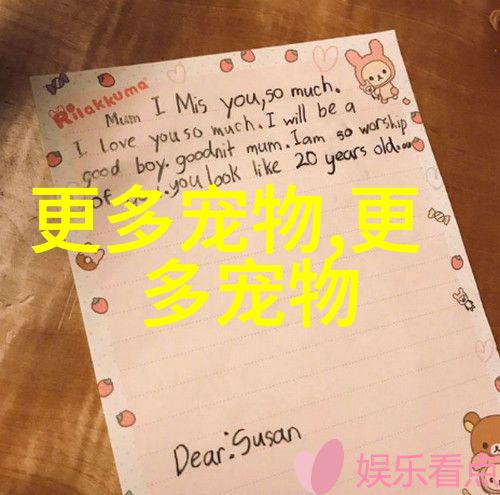 Rilakkuma
Mum I Mis you, so much.
I love you so much. I will be a
good boy. goodnit mum. I am so worship
of you. you look like 20 years old.
更多宠物,更
多宠物
Dear: Susan
娱乐看点